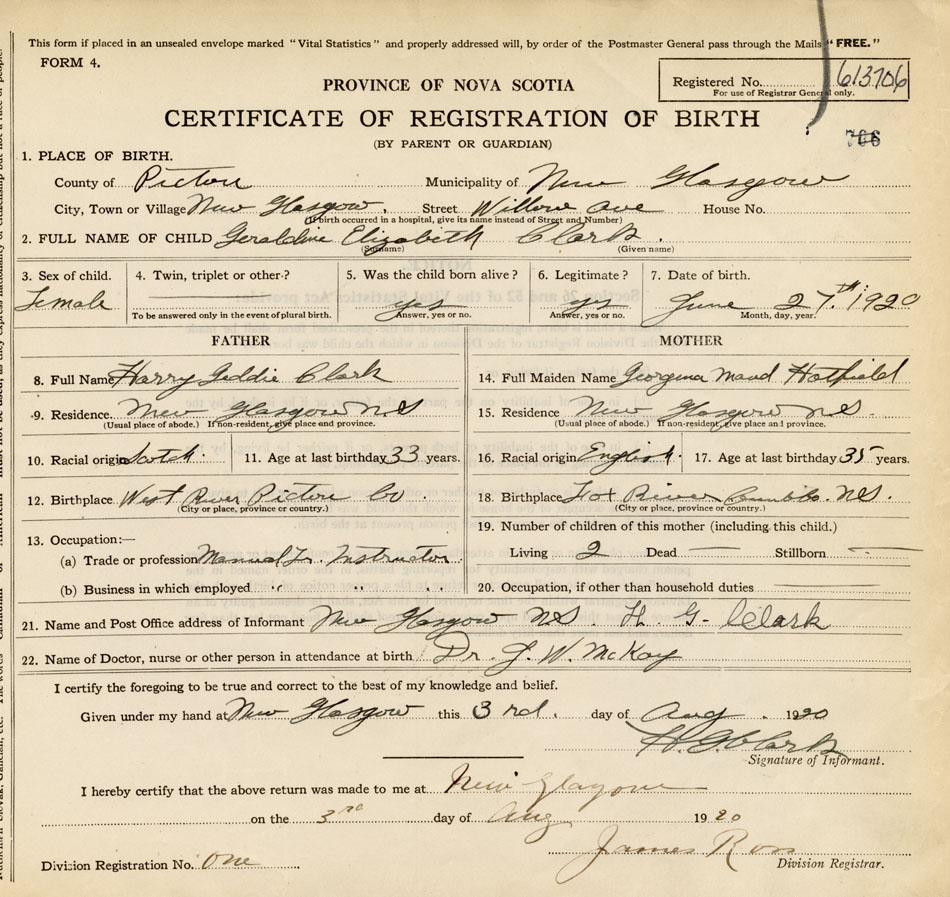 This form if placed in an unsealed envelope marked "Vital Statistics" and properly addressed will, by order of the Postmaster General pass through the Mails "FREE."
FORM 4.
Registered No. 613706
For use of Registrar General only.
PROVINCE OF NOVA SCOTIA
CERTIFICATE OF REGISTRATION OF BIRTH
(BY PARENT OR GUARDIAN)
706
1. PLACE OF BIRTH.
County of Pictou Municipality of New Glasgow
City, Town or Village New Glasgow, Street Willow Ave House No.
(If birth occurred in a hospital, give its name instead of Street and Number)
2. FULL NAME OF CHILD Geraldine Elizabeth Clark.
(Surname) (Given name)
3. Sex of child. 4. Twin, triplet or other? 5. Was the child born alive? 6. Legitimate? 7. Date of birth.
Female yes yes June 27th 1920
To be answered only in the event of plural birth. Answer, yes or no. Answer, yes or no. Month, day, year.
FATHER MOTHER
8. Full Name Harry Geddie Clark 14. Full Maiden Name Georgina Maud Hatfield
9. Residence. New Glasgow N.S 15. Residence New Glasgow N.S.
(Usual place of abode.) If non-resident, give place and province. (Usual place of abode.) If non-resident, give place and province.
10. Racial origin Scotch. 11. Age at last birthday 33 years. 16. Racial origin English. 17. Age at last birthday 35 years.
12. Birthplace West River Pictou Co 18. Birthplace Fox River N.S.
(City or place, province or country.) (City or place, province or country.)
19. Number of children of this mother (including this child.)
13. Occupation:—
(a) Trade or profession Manual Tr. Instructor Living 2 Dead — Stillborn —
(b) Business in which employed " " 20. Occupation, if other than household duties
21. Name and Post Office address of Informant New Glasgow N.S. H. G. Clark
22. Name of Doctor, nurse or other person in attendance at birth Dr. J. W. McKay
I certify the foregoing to be true and correct to the best of my knowledge and belief.
Given under my hand at New Glasgow this 3rd. day of Aug. 1920
H.G. Clark
Signature of Informant.
I hereby certify that the above return was made to me at New Glasgow
on the 3rd day of Aug 1920
James Ross
Division Registration No. One Division Registrar.